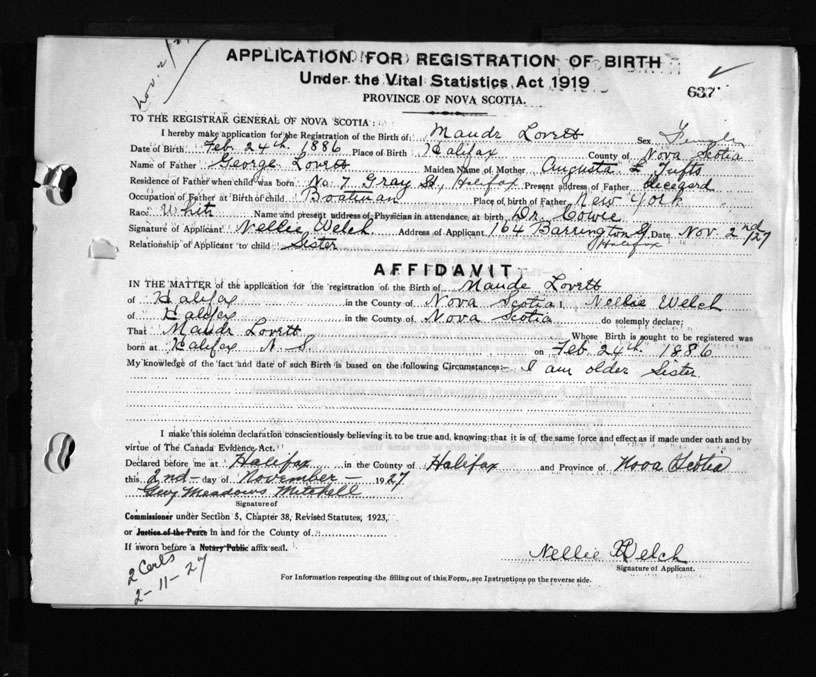 Nov. 2/27
APPLICATION FOR REGISTRATION OF BIRTH
Under the Vital Statistics Act 1919
PROVINCE OF NOVA SCOTIA.
637
TO THE REGISTRAR GENERAL OF NOVA SCOTIA:
I hereby make application for the Registration of the Birth of: Maude Lovett Sex Female
Date of Birth Feb 24th 1886 Place of Birth Halifax County of Nova Scotia
Name of Father George Lovett Maiden Name of Mother Augusta Tufts
Residence of Father when child was born No. 7 Gray St, Halifax Present address of Father deceased
Occupation of Father at Birth of child Boatman Place of birth of Father New York
Race White Name and present address of Physician in attendance, at birth Dr. Cowie
Signature of Applicant Nellie Welch Address of Applicant 164 Barrington St Halifax Date Nov. 2nd/27
Relationship of Applicant to child Sister
AFFIDAVIT
IN THE MATTER of the application for the registration of the Birth of Maude Lovett
of Halifax in the County of Nova Scotia I, Nellie Welch
of Halifax in the County of Nova Scotia do solemnly declare;
That Maude Lovett Whose Birth is sought to be registered was
born at Halifax N. S. on Feb. 24th 1886
My knowledge of the fact and date of such Birth is based on the following Circumstances:– I am older Sister
I make this solemn declaration conscientiously believing it to be true and, knowing that it is of the same force and effect as if made under oath and by
virtue of The Canada Evidence Act.
Declared before me at Halifax in the County of Halifax and Province of Nova Scotia
this 2nd – day of November – 1927
Guy Meadows Mitchell
Signature of
Commissioner under Section 5, Chapter 38, Revised Statutes, 1923,
or Justice of the Peace in and for the County of
If sworn before a Notary Public affix seal.
Nellie Welch
Signature of Applicant.
2 Certs
2-11-27
For Information respecting the filling out of this Form, see Instructions on the reverse side.